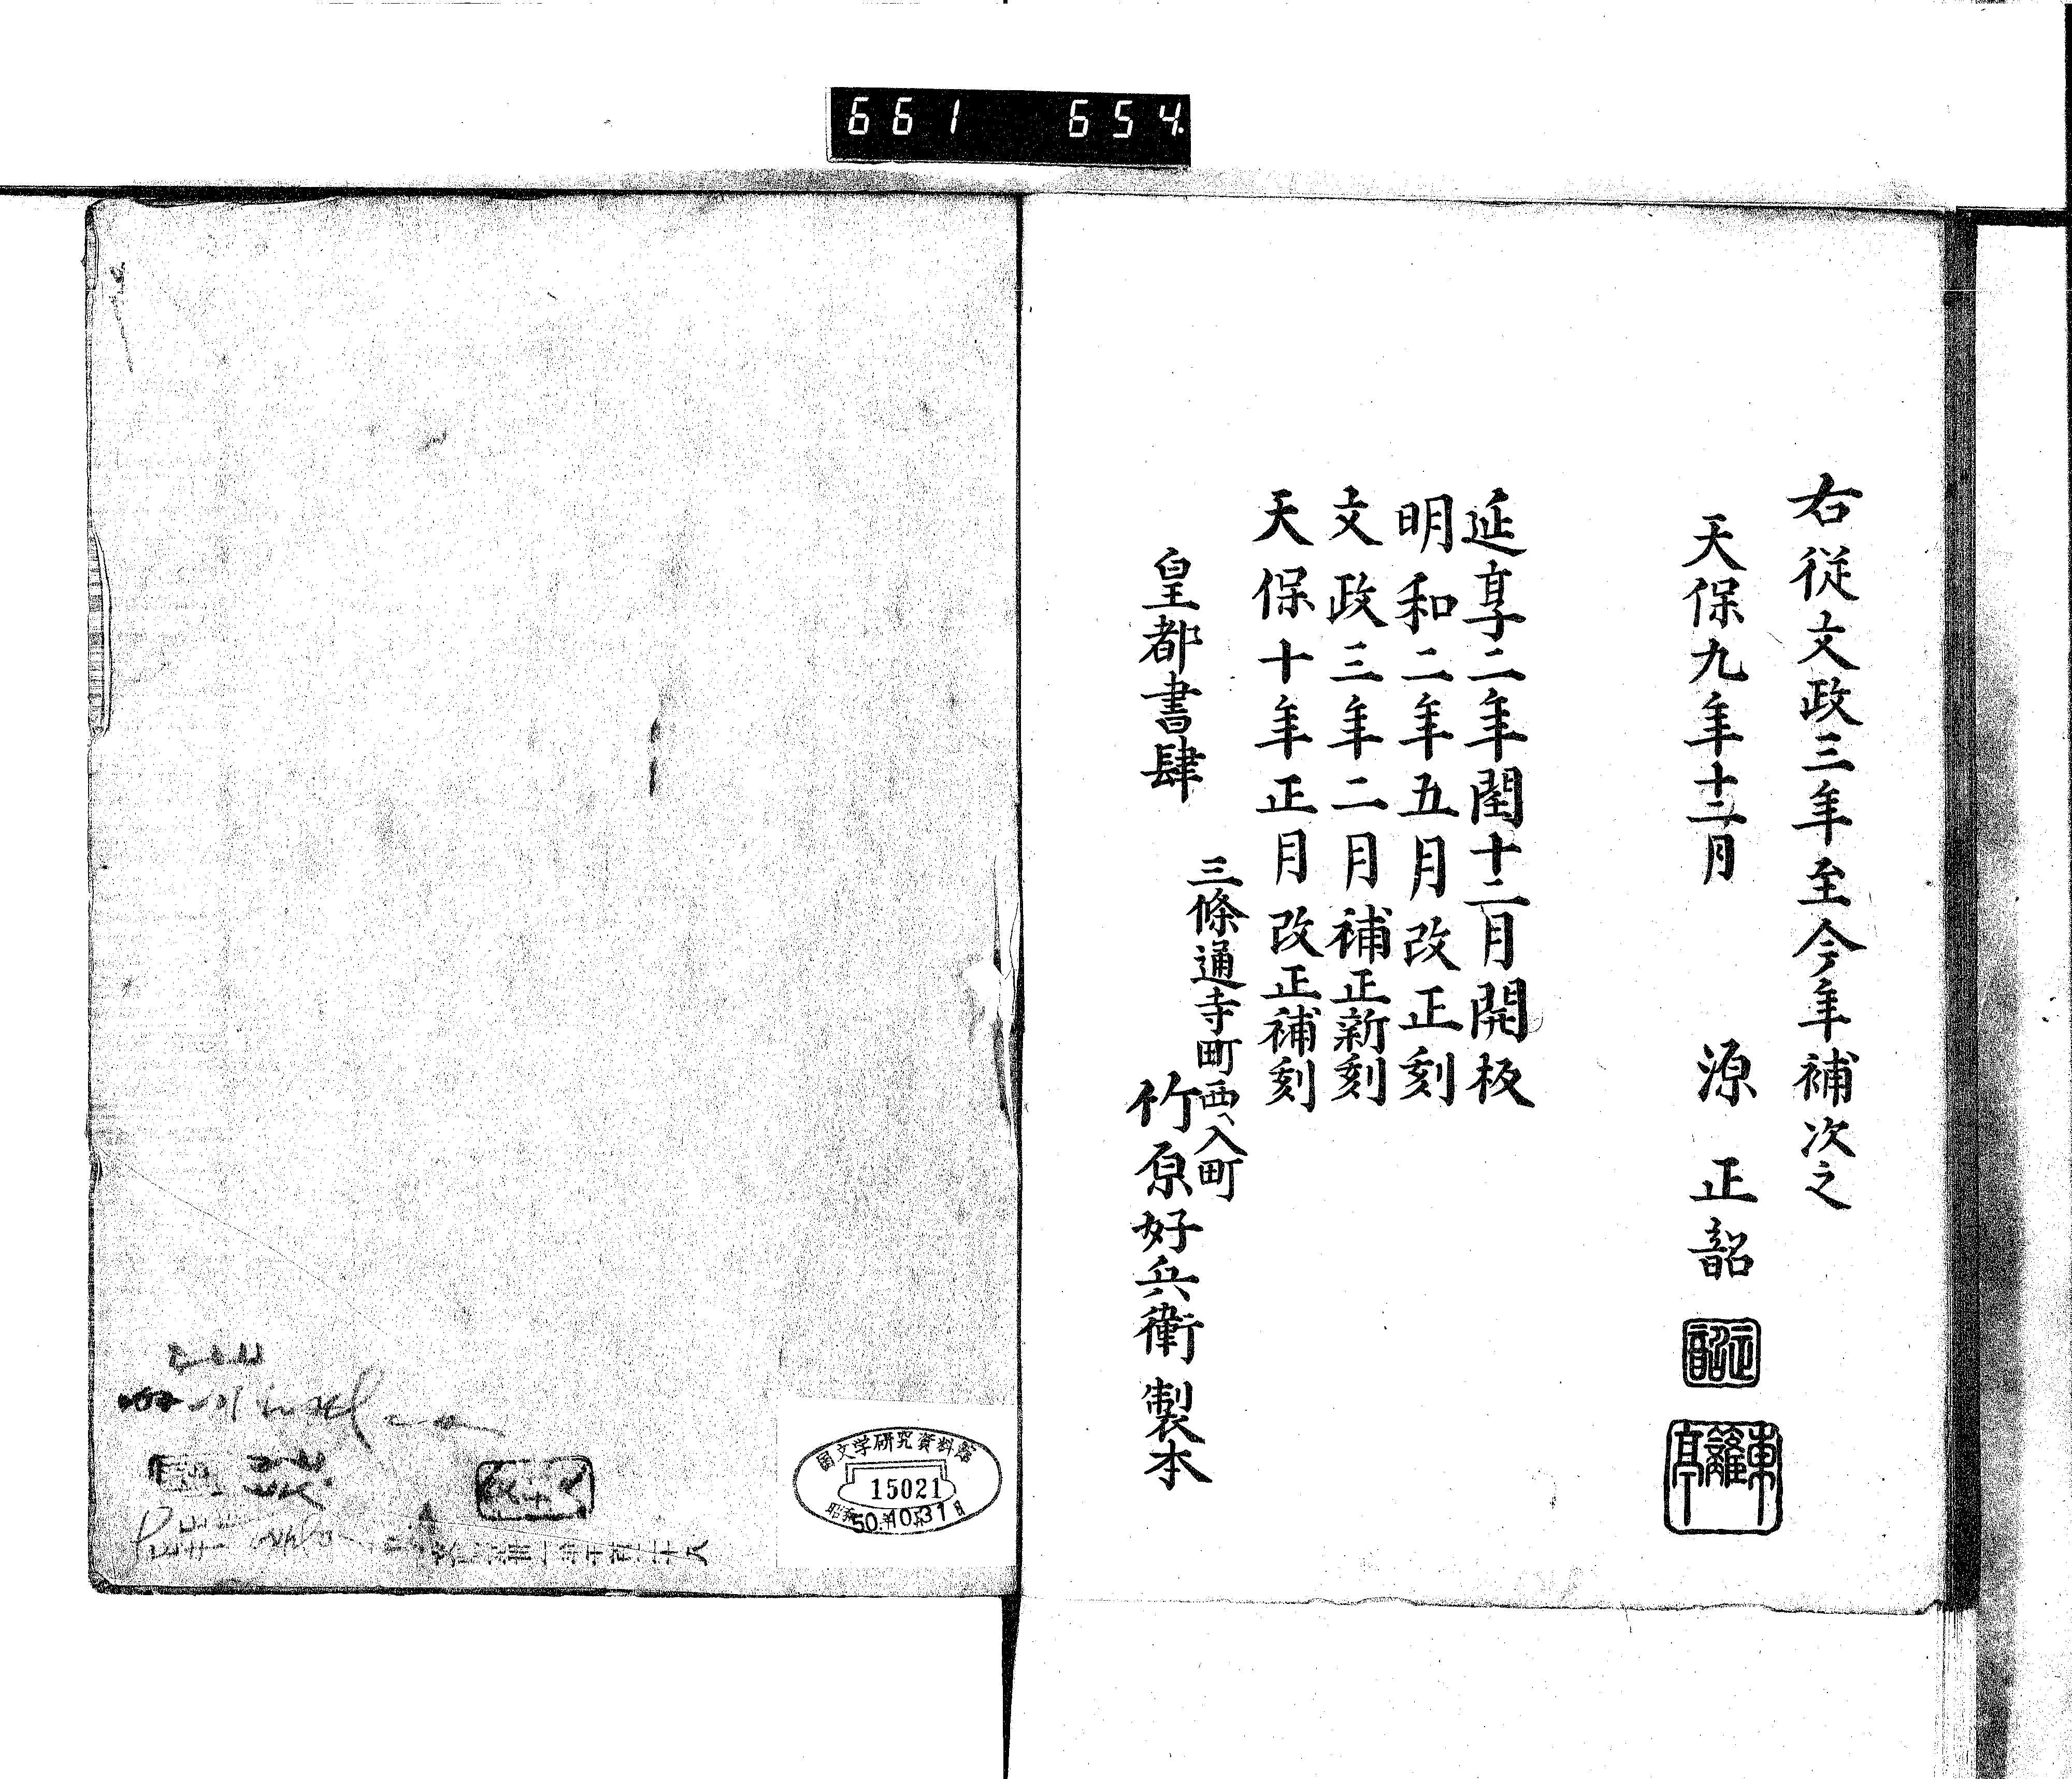 661 654
右従文政三年至今年補次之
天保九年十二月 源正韶
正韶
東籬亭
延享二年閏十二月開板
明和二年五月改正刻
文政三年二月補正新刻
天保十年正月改正補刻
皇都書肆
三條通寺町西ヘ入町
竹原好兵衛製本
国文学研究資料館
15021
昭和50年10月31日